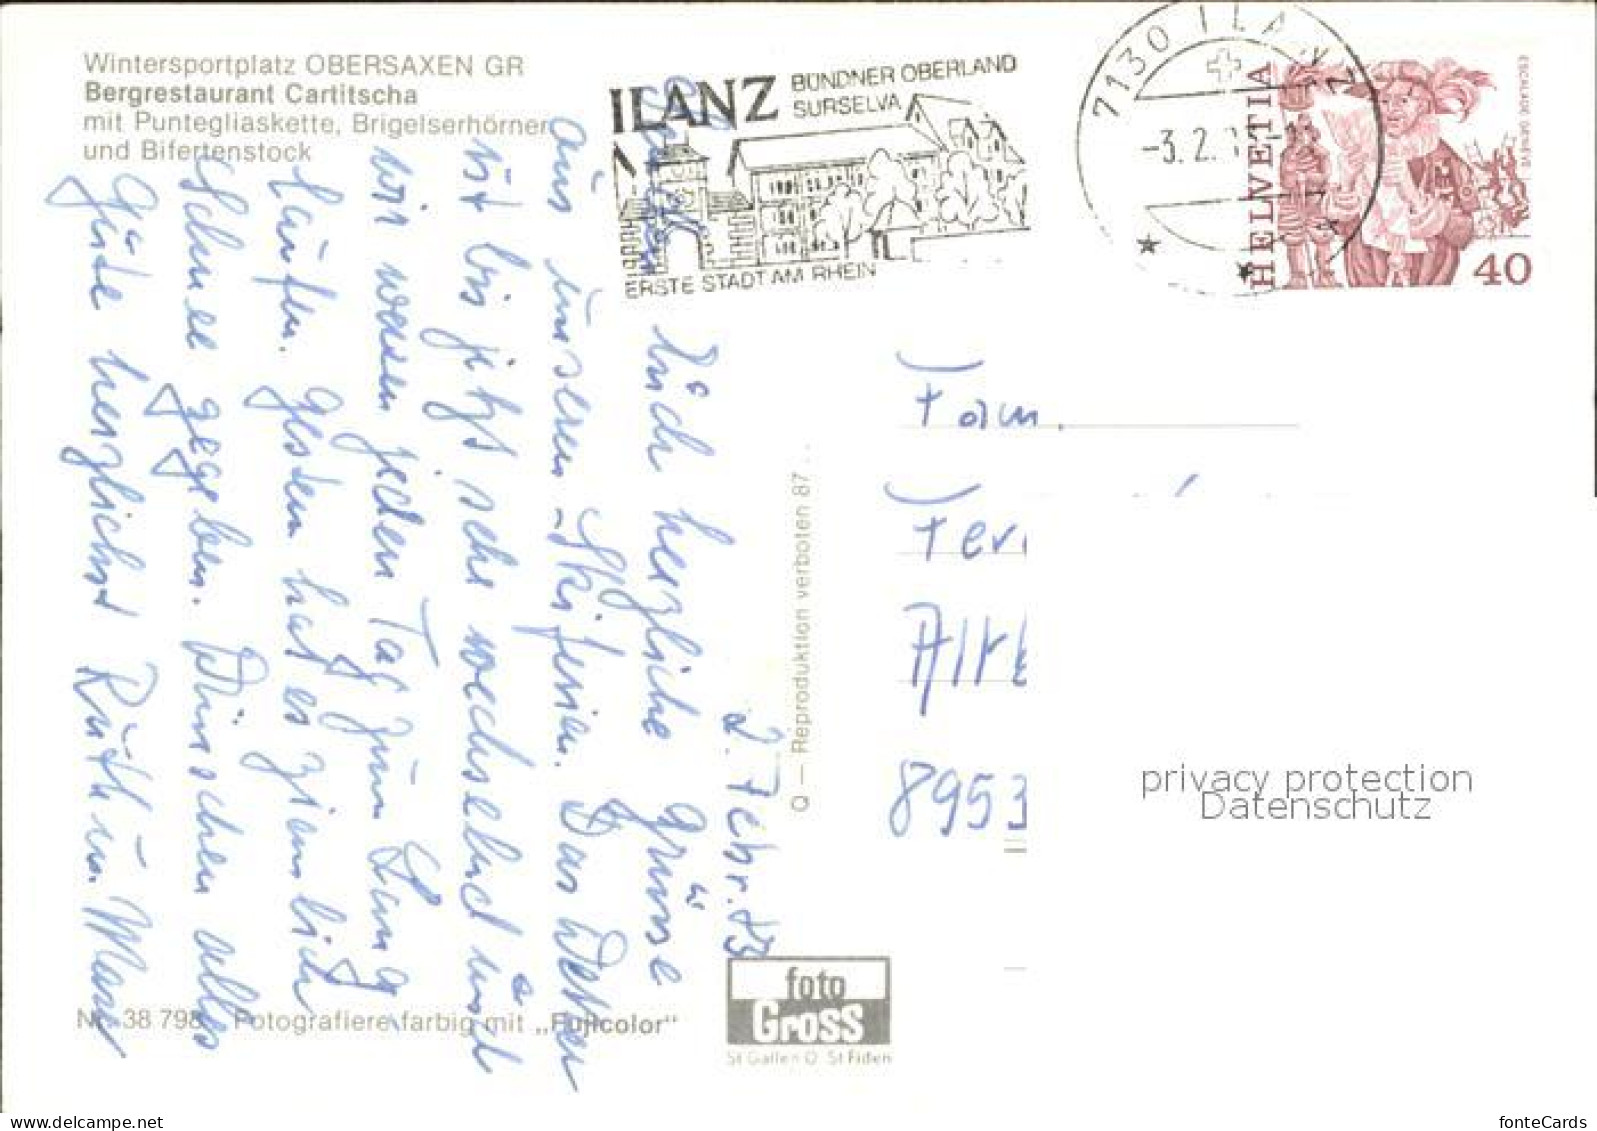 Wintersportplatz OBERSAXEN GR
Bergrestaurant Cartitscha
mit Puntegliaskette, Brigelserhörner
und Bifertenstock
ILANZ BÜNDNER OBERLAND
SURSELVA
ERSTE STADT AM RHEIN
7130 ILANZ
-3. 2.
HELVETIA
ESCALADE GENÈVE
40
2. Febr. 83
Euch herzliche Grüsse
aus unseren Skiferien. Das Wetter
ist bis jetzt sehr wechselnd und
wir waren jeden Tag zum Lang
laufen. Gestern hat es ziemlich
Schnee gegeben. Wünschen alles
Gute herzlichst Ruth u. Marc
Fam.
Fer
8953
Q — Reproduktion verboten 87 . .
privacy protection
Datenschutz
Nr. 38 798 Fotografiere farbig mit „Fujicolor"
foto
Gross
St Gallen O St Fiden
www.delcampe.net
fonteCards